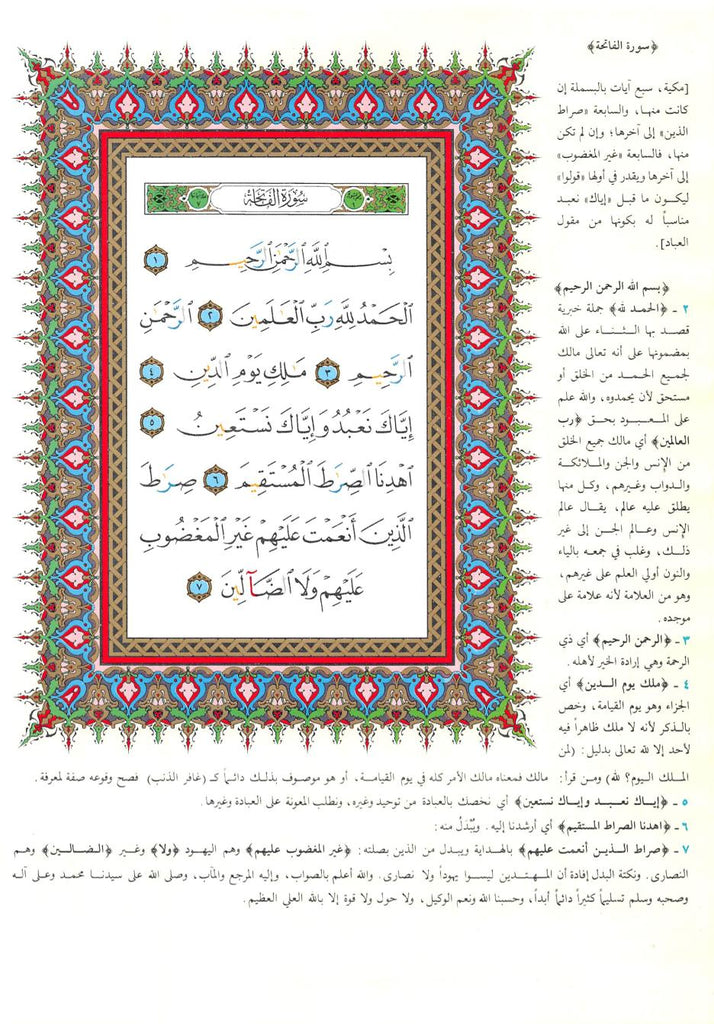 ﴿سورة الفاتحة﴾
[مكية، سبع آيات بالبسملة إن
كانت منها، والسابعة «صراط
الذين» إلى آخرها؛ وإن لم تكن
منها، فالسابعة «غير المغضوب»
إلى آخرها ويقدر في أولها «قولوا»
ليكون ما قبل «إياك» نعبد
مناسباً له بكونها من مقول
العباد].
سُورَةُ الفَاتِحَةِ
بِسْمِ ٱللَّهِ ٱلرَّحْمَٰنِ ٱلرَّحِيمِ ١
ٱلْحَمْدُ لِلَّهِ رَبِّ ٱلْعَٰلَمِينَ ٢ ٱلرَّحْمَٰنِ
ٱلرَّحِيمِ ٣ مَٰلِكِ يَوْمِ ٱلدِّينِ ٤
إِيَّاكَ نَعْبُدُ وَإِيَّاكَ نَسْتَعِينُ ٥
ٱهْدِنَا ٱلصِّرَٰطَ ٱلْمُسْتَقِيمَ ٦ صِرَٰطَ
ٱلَّذِينَ أَنْعَمْتَ عَلَيْهِمْ غَيْرِ ٱلْمَغْضُوبِ
عَلَيْهِمْ وَلَا ٱلضَّآلِّينَ ٧
﴿بسم الله الرحمن الرحيم﴾
٢ - ﴿الحمد لله﴾ جملة خبرية
قصد بها الثناء على الله
بمضمونها على أنه تعالى مالك
لجميع الحمد من الخلق أو
مستحق لأن يحمدوه، والله علم
على المعبود بحق ﴿رب
العالمين﴾ أي مالك جميع الخلق
من الإنس والجن والملائكة
والدواب وغيرهم، وكل منها
يطلق عليه عالم، يقال عالم
الإنس وعالم الجن إلى غير
ذلك، وغلب في جمعه بالياء
والنون أولي العلم على غيرهم،
وهو من العلامة لأنه علامة على
موجده.
٣ - ﴿الرحمن الرحيم﴾ أي ذي
الرحمة وهي إرادة الخير لأهله.
٤ - ﴿ملك يوم الدين﴾ أي
الجزاء وهو يوم القيامة، وخص
بالذكر لأنه لا ملك ظاهراً فيه
لأحد إلا لله تعالى بدليل: (لمن
الملك اليوم؟ لله) ومن قرأ: مالك فمعناه مالك الأمر كله في يوم القيامة، أو هو موصوف بذلك دائماً كـ (غافر الذنب) فصح وقوعه صفة لمعرفة.
٥ - ﴿إياك نعبد وإياك نستعين﴾ أي نخصك بالعبادة من توحيد وغيره، ونطلب المعونة على العبادة وغيرها.
٦ - ﴿اهدنا الصراط المستقيم﴾ أي أرشدنا إليه. ويُبْدَلُ منه:
٧ - ﴿صراط الذين أنعمت عليهم﴾ بالهداية ويبدل من الذين بصلته: ﴿غير المغضوب عليهم﴾ وهم اليهود ﴿ولا﴾ وغير ﴿الضالين﴾ وهم
النصارى. ونكتة البدل إفادة أن المهتدين ليسوا يهوداً ولا نصارى. والله أعلم بالصواب، وإليه المرجع والمآب، وصلى الله على سيدنا محمد وعلى آله
وصحبه وسلم تسليماً كثيراً دائماً أبداً، وحسبنا الله ونعم الوكيل، ولا حول ولا قوة إلا بالله العلي العظيم.